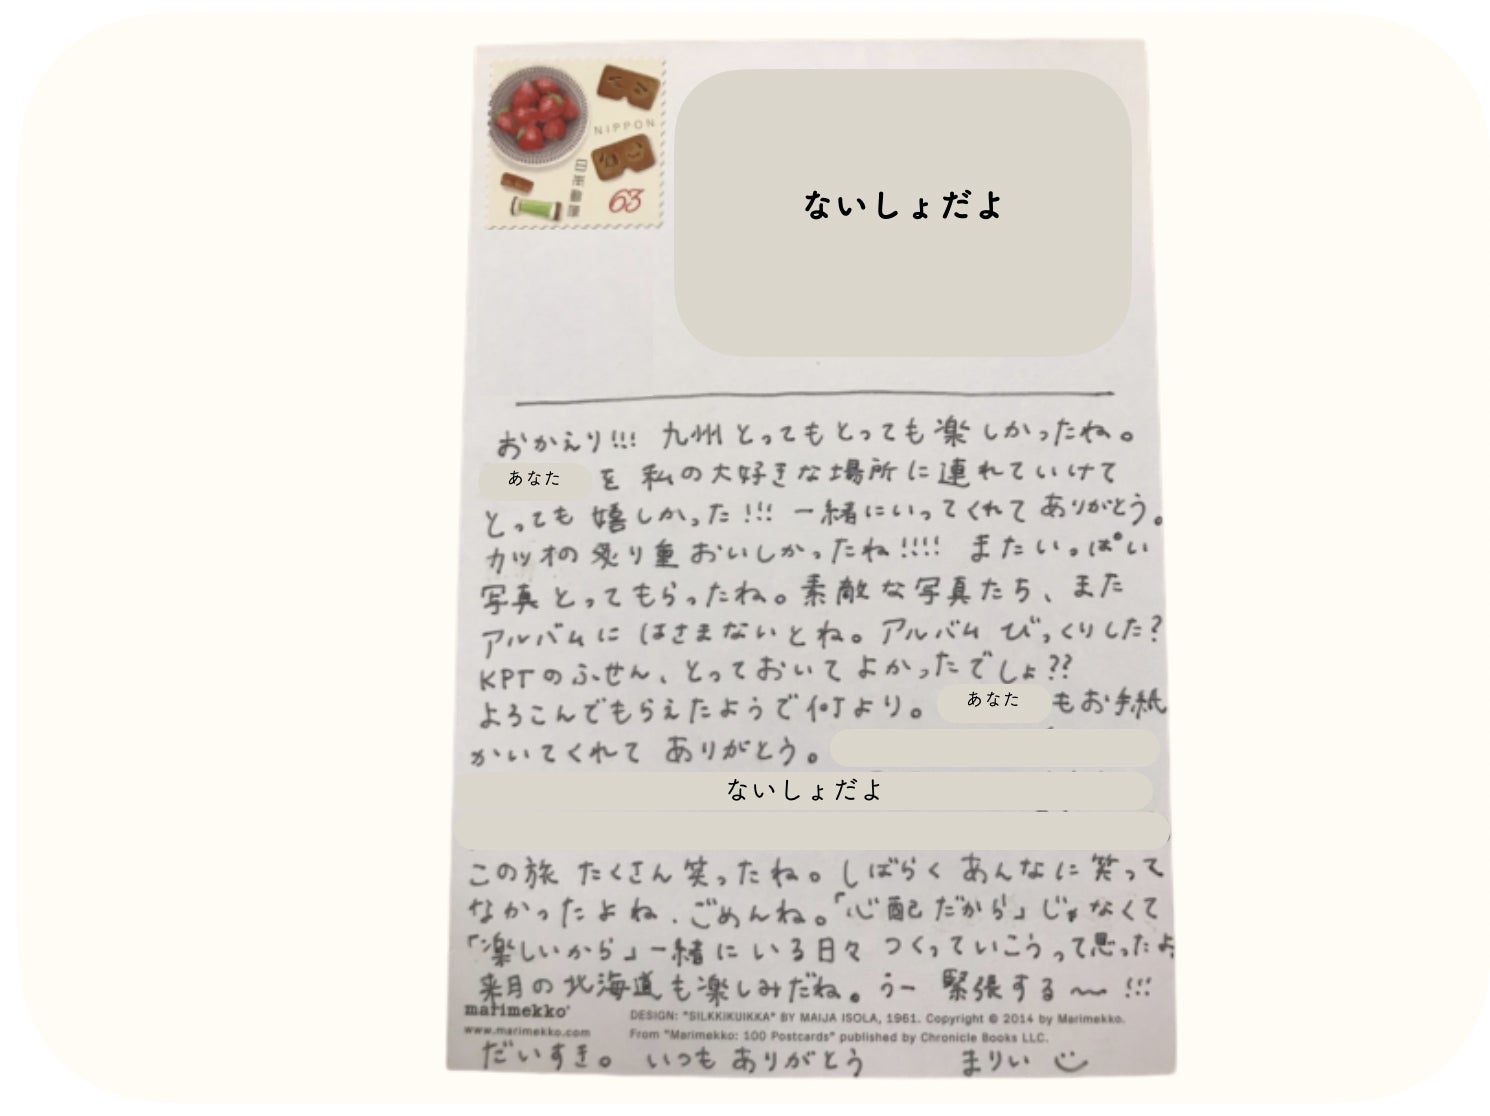 NIPPON
日本郵便
63
ないしょだよ
おかえり!!! 九州とってもとっても楽しかったね。
あなたを私の大好きな場所に連れていけて
とっても嬉しかった!!! 一緒にいってくれてありがとう。
カツオの炙り重おいしかったね!!!! またいっぱい
写真とってもらったね。素敵な写真たち、また
アルバムにはさまないとね。アルバムびっくりした?
KPTのふせん、とっておいてよかったでしょ??
よろこんでもらえたようで何より。あなたもお手紙
かいてくれてありがとう。
ないしょだよ
この旅たくさん笑ったね。しばらくあんなに笑って
なかったよね、ごめんね。「心配だから」じゃなくて
「楽しいから」一緒にいる日々つくっていこうって思ったよ
来月の北海道も楽しみだね。うー緊張する〜!!!
marimekko®
DESIGN: "SILKKIKUIKKA" BY MAIJA ISOLA, 1961. Copyright © 2014 by Marimekko.
www.marimekko.com
From "Marimekko: 100 Postcards" published by Chronicle Books LLC.
だいすき。いつもありがとう まりい